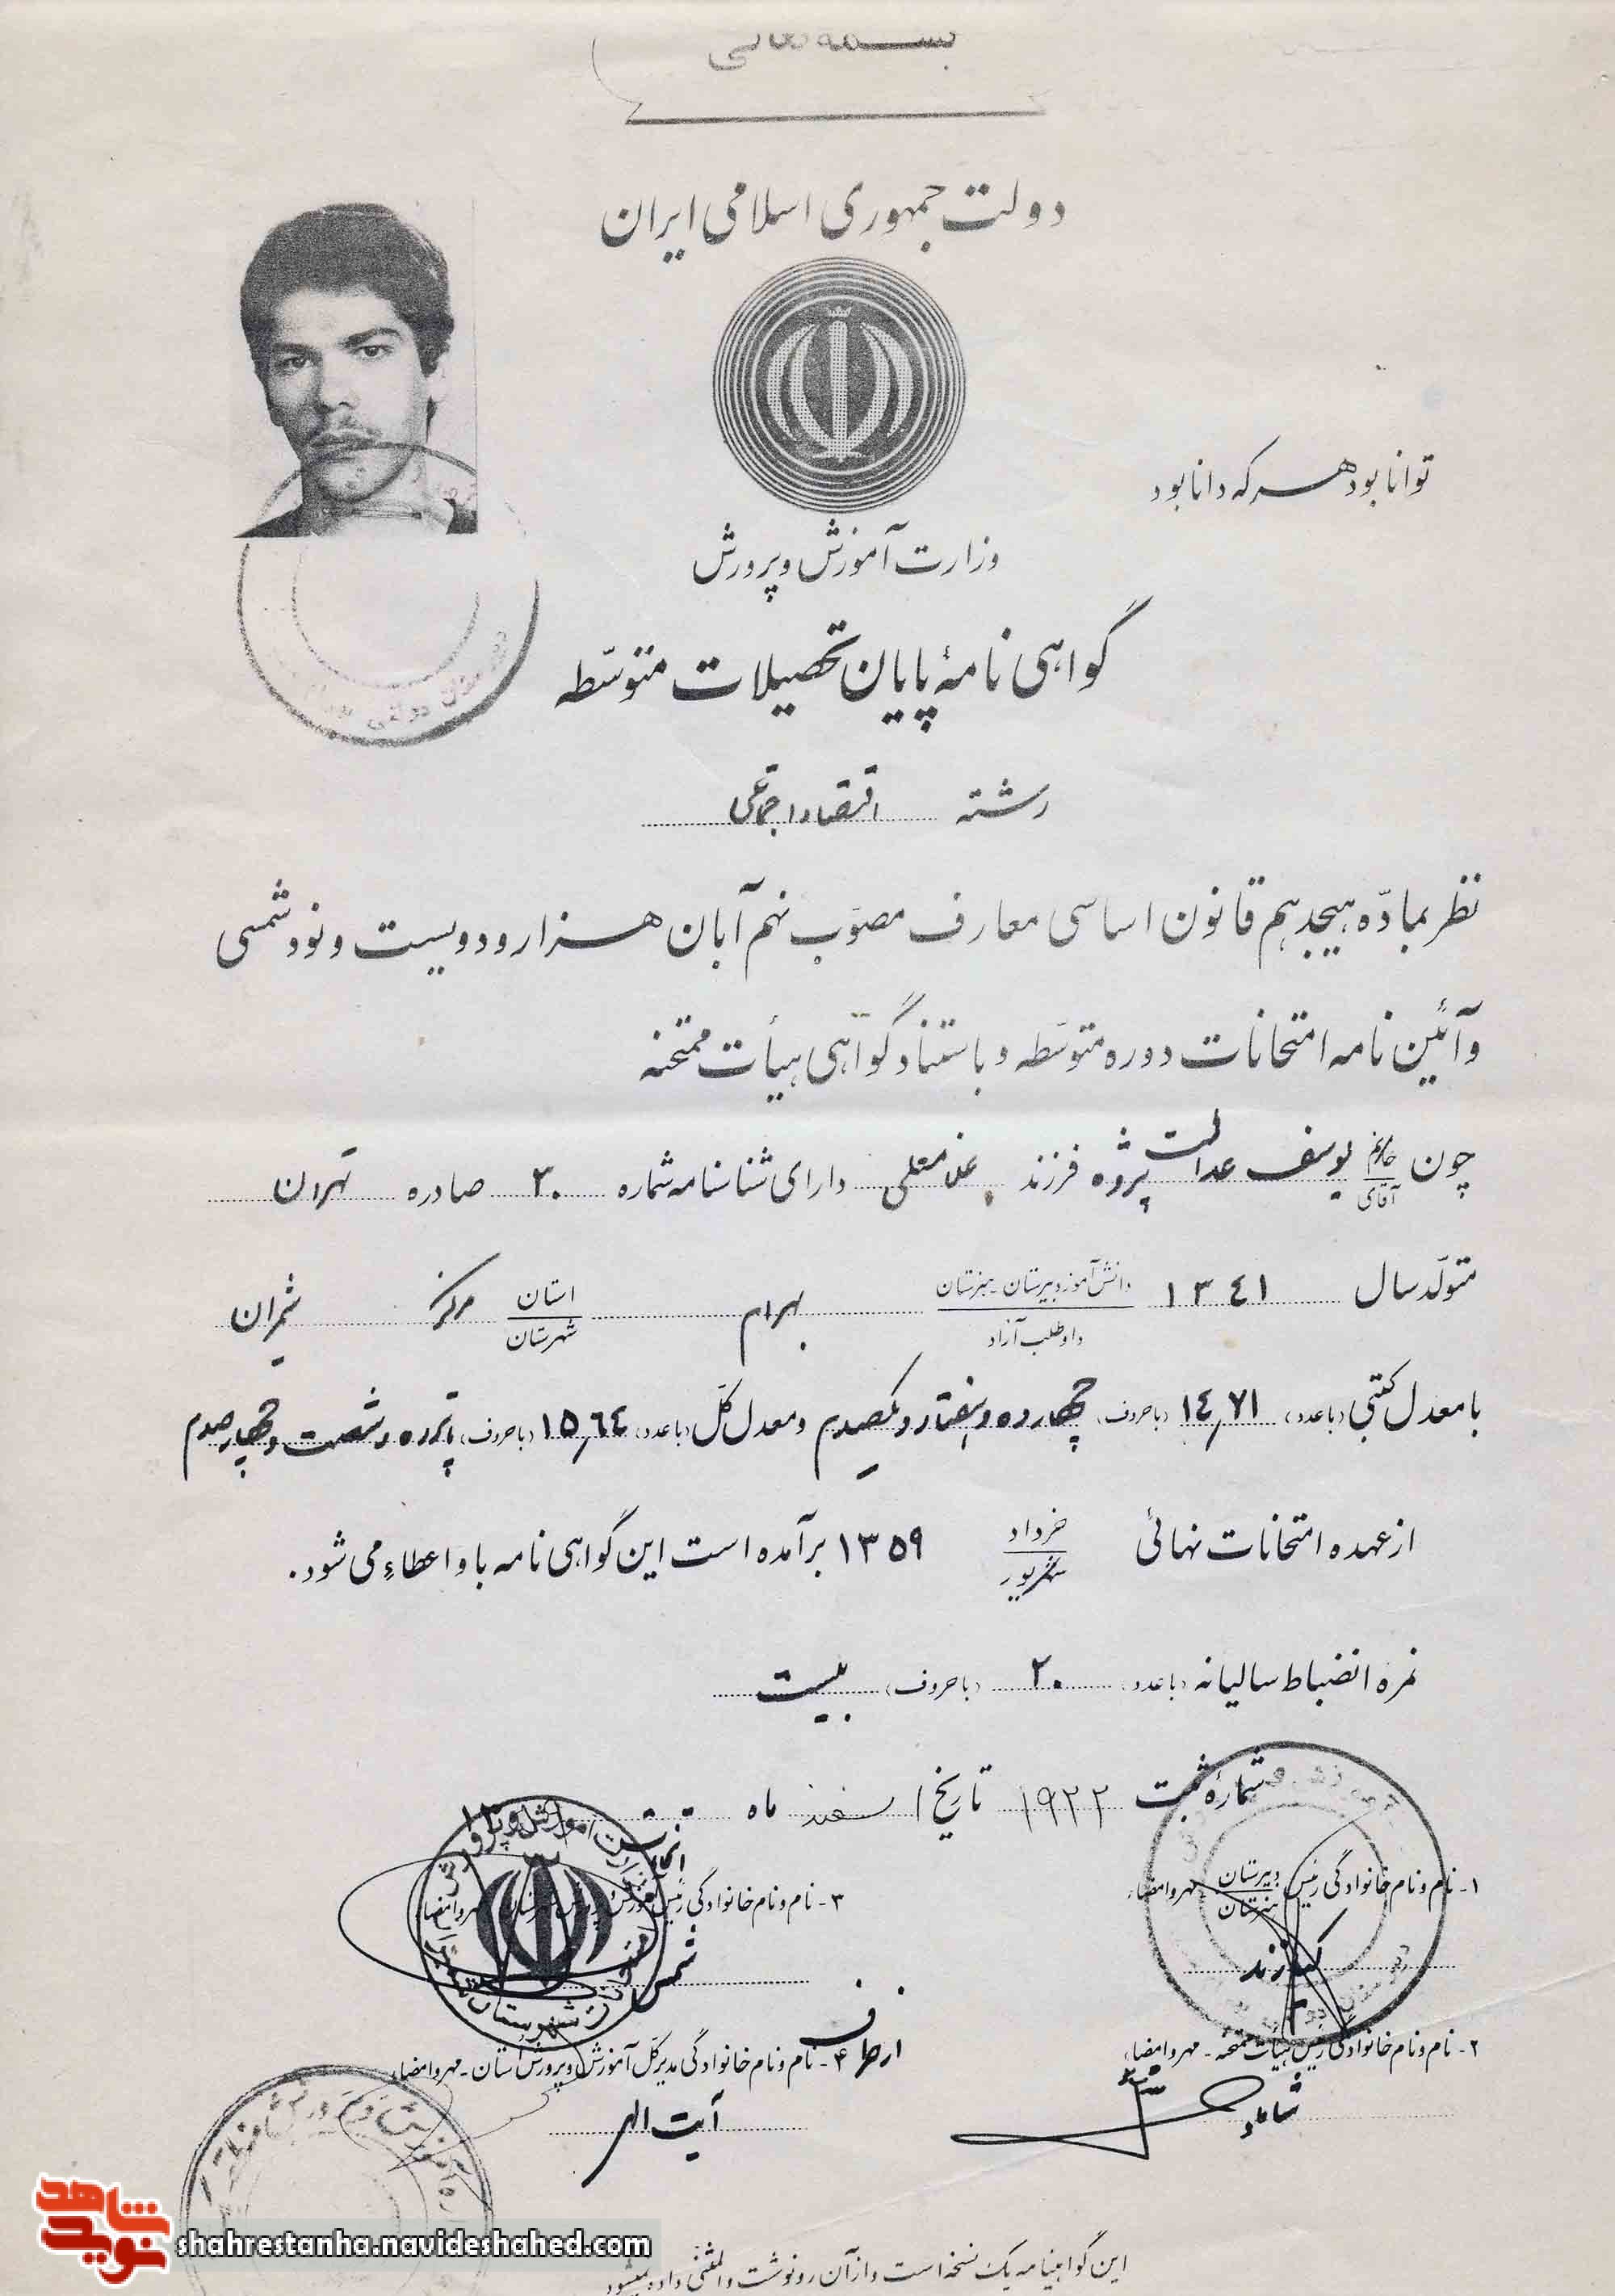 بسمه تعالی
دولت جمهوری اسلامی ایران
توانا بود هر که دانا بود
وزارت آموزش و پرورش
گواهی نامهٔ پایان تحصیلات متوسّطه
رشته اقتصاد اجتماعی
نظر بمادّه هیجدهم قانون اساسی معارف مصوّب نهم آبان هزار و دویست و نود شمسی
و آئین نامه امتحانات دوره متوسّطه و باستناد گواهی هیأت ممتحنه
چون خانم آقای یوسف عدالت پژوه فرزند غلامعلی دارای شناسنامه شماره ۲۰ صادره تهران
متولّد سال ۱۳۴۱ دانش آموز دبیرستان - هنرستان داوطلب آزاد بهرام استان شهرستان مرکز شمیران
با معدل کتبی (با عدد) ۱۴٫۷۱ (با حروف) چهارده و هفتاد و یکصدم و معدل کلّ (با عدد) ۱۵٫۶۴ (با حروف) پانزده و شصت و چهار صدم
از عهده امتحانات نهائی خرداد شهریور ۱۳۵۹ برآمده است این گواهی نامه باو اعطاء می شود.
نمره انضباط سالیانه (با عدد) ۲۰ (با حروف) بیست
شمارهٔ ثبت ۱۹۲۲ تاریخ ۱ اسفند ماه
۱- نام و نام خانوادگی رئیس دبیرستان هنرستان - مهر و امضاء
۳- نام و نام خانوادگی رئیس آموزش و پرورش شهرستان - مهر و امضاء
شمس
۲- نام و نام خانوادگی رئیس هیأت ممتحنه - مهر و امضاء
از طرف
۴- نام و نام خانوادگی مدیر کلّ آموزش و پرورش استان - مهر و امضاء
آیت الهی
این گواهینامه یک نسخه است و از آن رونوشت و المثنی داده نمیشود
نوید شاهد
shahrestanha.navideshahed.com